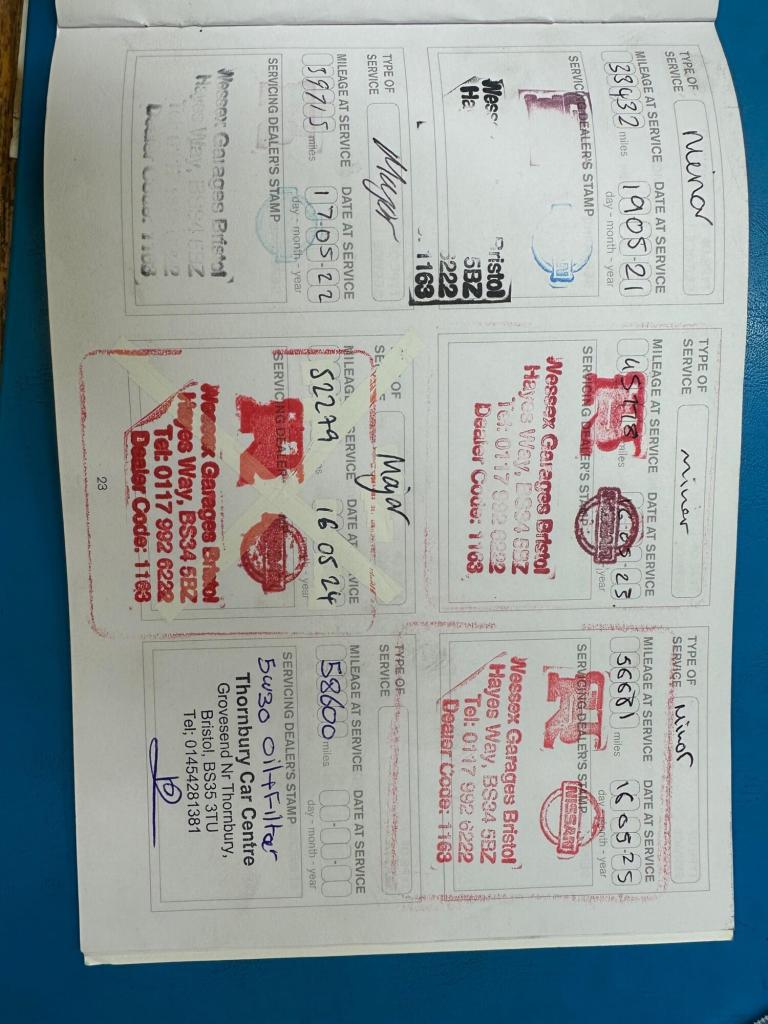 TYPE OF SERVICE Minor
MILEAGE AT SERVICE DATE AT SERVICE
33432 miles 19 05 21
day - month - year
SERVICING DEALER'S STAMP
Wess Bristol
Ha 5BZ
222
1163
TYPE OF SERVICE minor
MILEAGE AT SERVICE DATE AT SERVICE
miles 16-05-23
SERVICING DEALER'S STAMP
Wessex Garages Bristol
Hayes Way, BS34 5BZ
Tel: 0117 992 6222
Dealer Code: 1163
TYPE OF SERVICE Minor
MILEAGE AT SERVICE DATE AT SERVICE
56681 miles 16 05 25
day - month - year
SERVICING DEALER'S STAMP
NISSAN
Wessex Garages Bristol
Hayes Way, BS34 5BZ
Tel: 0117 992 6222
Dealer Code: 1163
TYPE OF SERVICE Major
MILEAGE AT SERVICE DATE AT SERVICE
39715 miles 17-05-22
day - month - year
SERVICING DEALER'S STAMP
Wessex Garages Bristol
Hayes Way, BS34 5BZ
Dealer Code: 1163
OF Major
MILEAG SERVICE DATE AT VICE
52279 16 05 24
year
SERVICING DEALER
Wessex Garages Bristol
Hayes Way, BS34 5BZ
Tel: 0117 992 6222
Dealer Code: 1163
TYPE OF SERVICE
MILEAGE AT SERVICE DATE AT SERVICE
58600 miles
day - month - year
SERVICING DEALER'S STAMP
5W30 Oil + Filter
Thornbury Car Centre
Grovesend Nr Thornbury,
Bristol, BS35 3TU
Tel; 01454281381
23